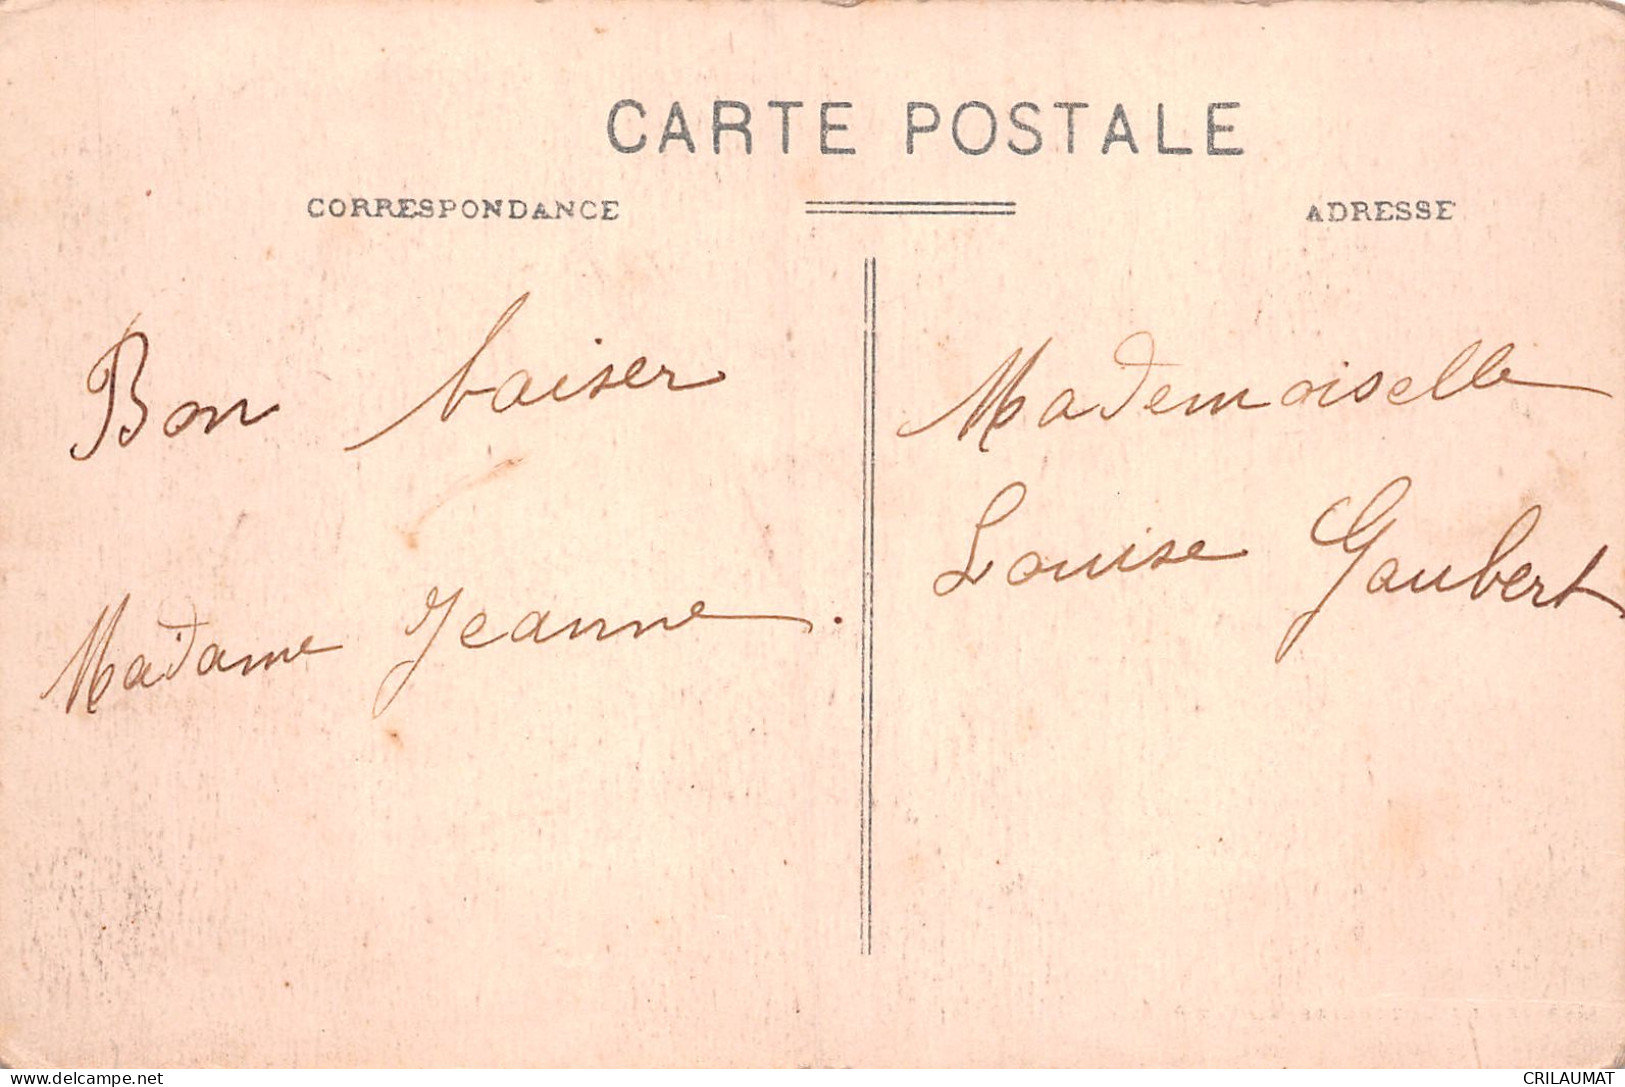 CARTE POSTALE
CORRESPONDANCE
ADRESSE
Bon baiser
Madame Jeanne.
Mademoiselle
Louise Gaubert
www.delcampe.net
CRILAUMAT